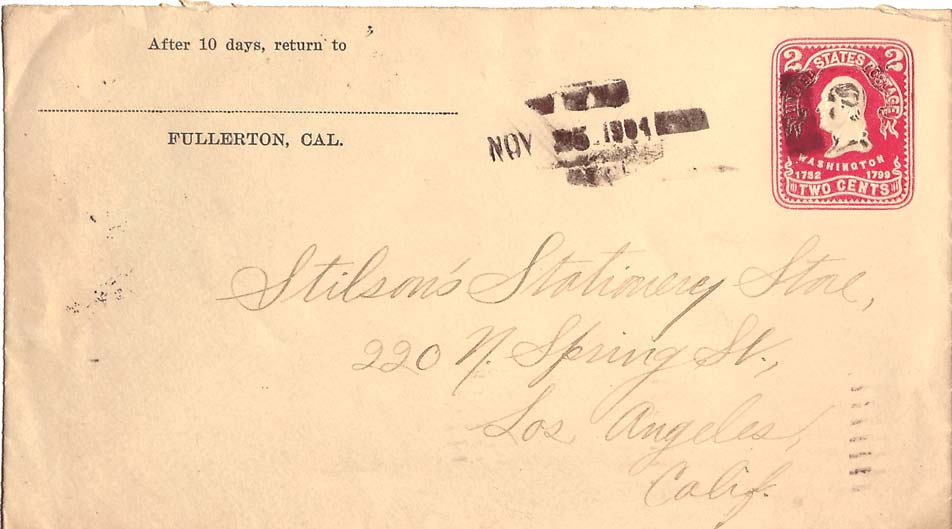 After 10 days, return to
FULLERTON, CAL.
NOV 1904
2 2
UNITED STATES POSTAGE
WASHINGTON
1732 1799
TWO CENTS
Stilson's Stationery Store,
220 N. Spring St.,
Los Angeles,
Calif.